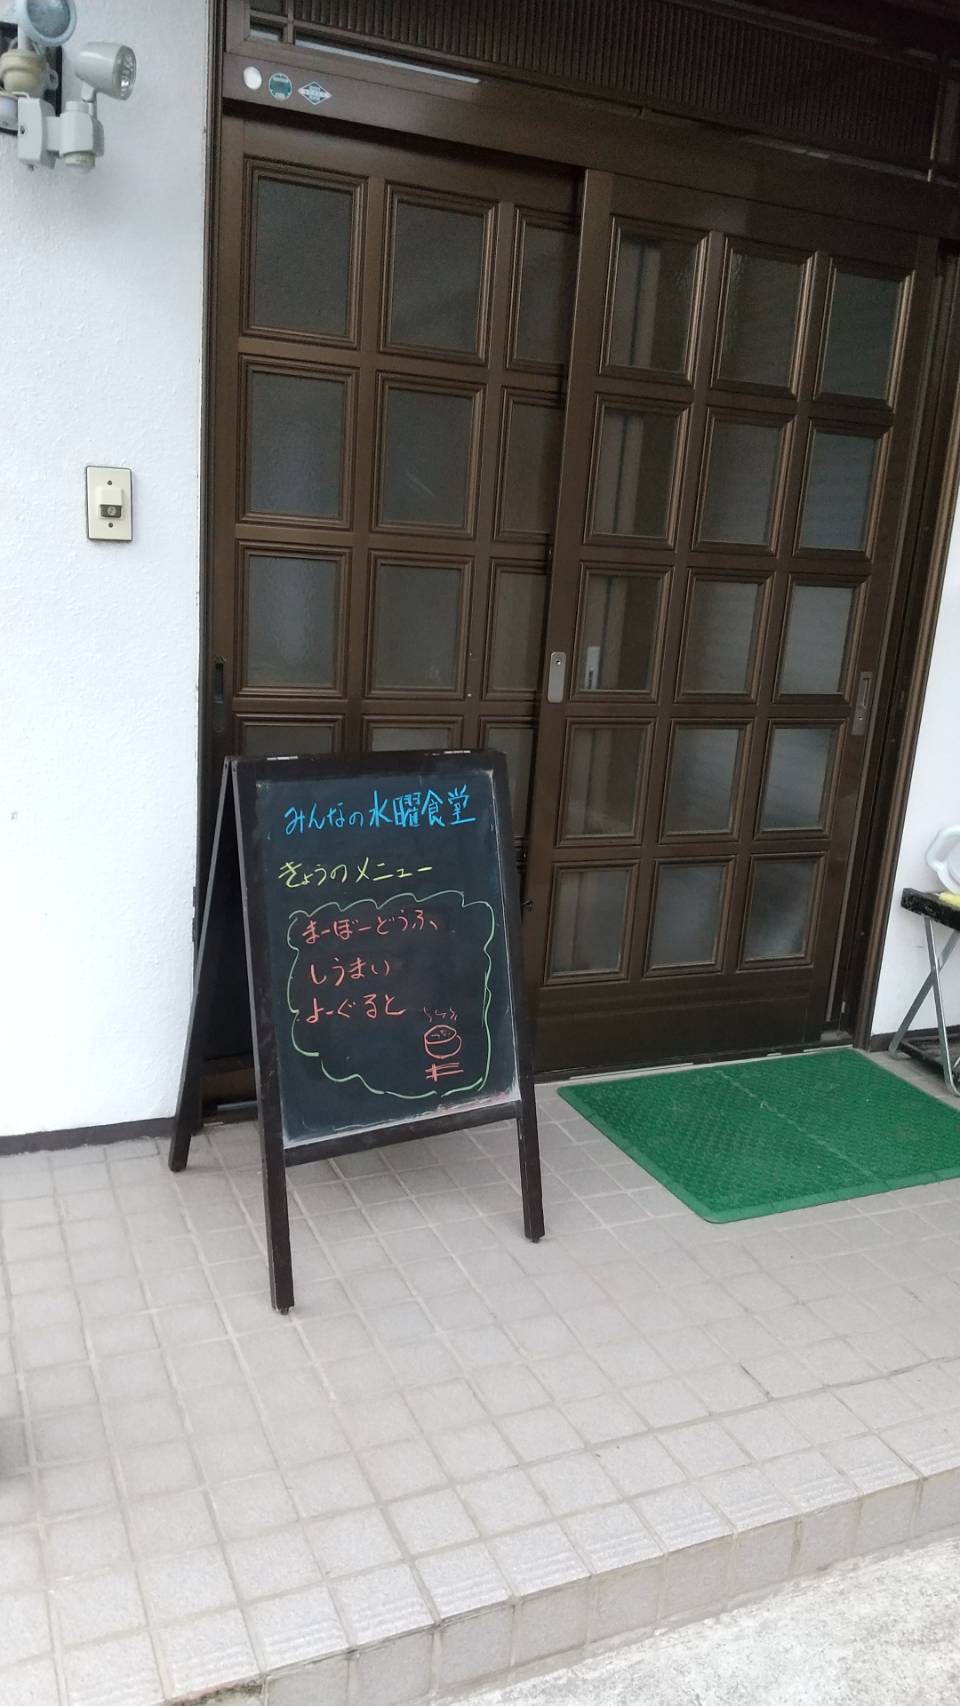 みんなの水曜食堂
きょうのメニュー
まーぼーどうふ
しうまい
よーぐると